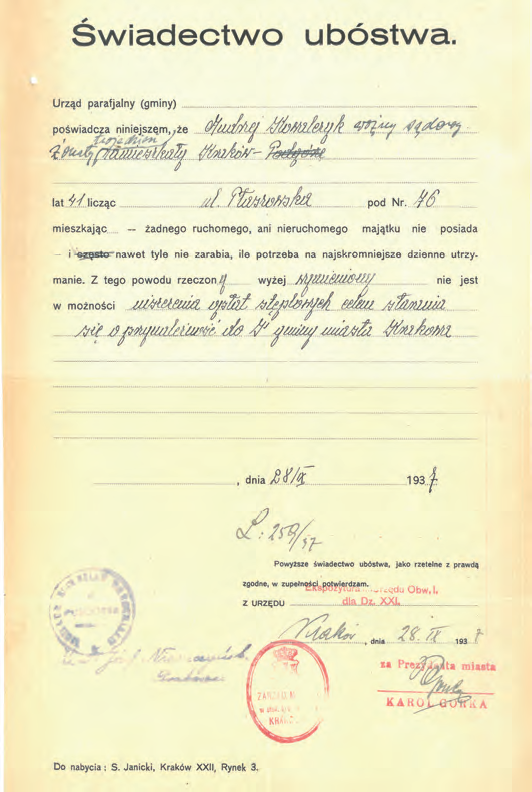 Świadectwo ubóstwa.
Urząd parafjalny (gminy)
poświadcza niniejszem, że Andrzej Kowalczyk woźny sądowy
żonaty trojgiem zamieszkały Kraków - Podgórze
lat 41 licząc ul. Płaszowska pod Nr. 76
mieszkając — żadnego ruchomego, ani nieruchomego majątku nie posiada
— i często nawet tyle nie zarabia, ile potrzeba na najskromniejsze dzienne utrzy-
manie. Z tego powodu rzeczony wyżej wymieniony nie jest
w możności uiszczenia opłat stęplowych celem starania
się o przynależność do gminy miasta Krakowa
, dnia 28/IX 1937
L: 259/37
Powyższe świadectwo ubóstwa, jako rzetelne z prawdą
zgodne, w zupełności potwierdzam.
Ekspozytura Urzędu Obw. I.
Z URZĘDU dla Dz. XXI.
Kraków, dnia 28. IX 1937
za Prezydenta miasta
KAROL GÓRKA
ZARZĄD
KRAK
Do nabycia: S. Janicki, Kraków XXII, Rynek 3.